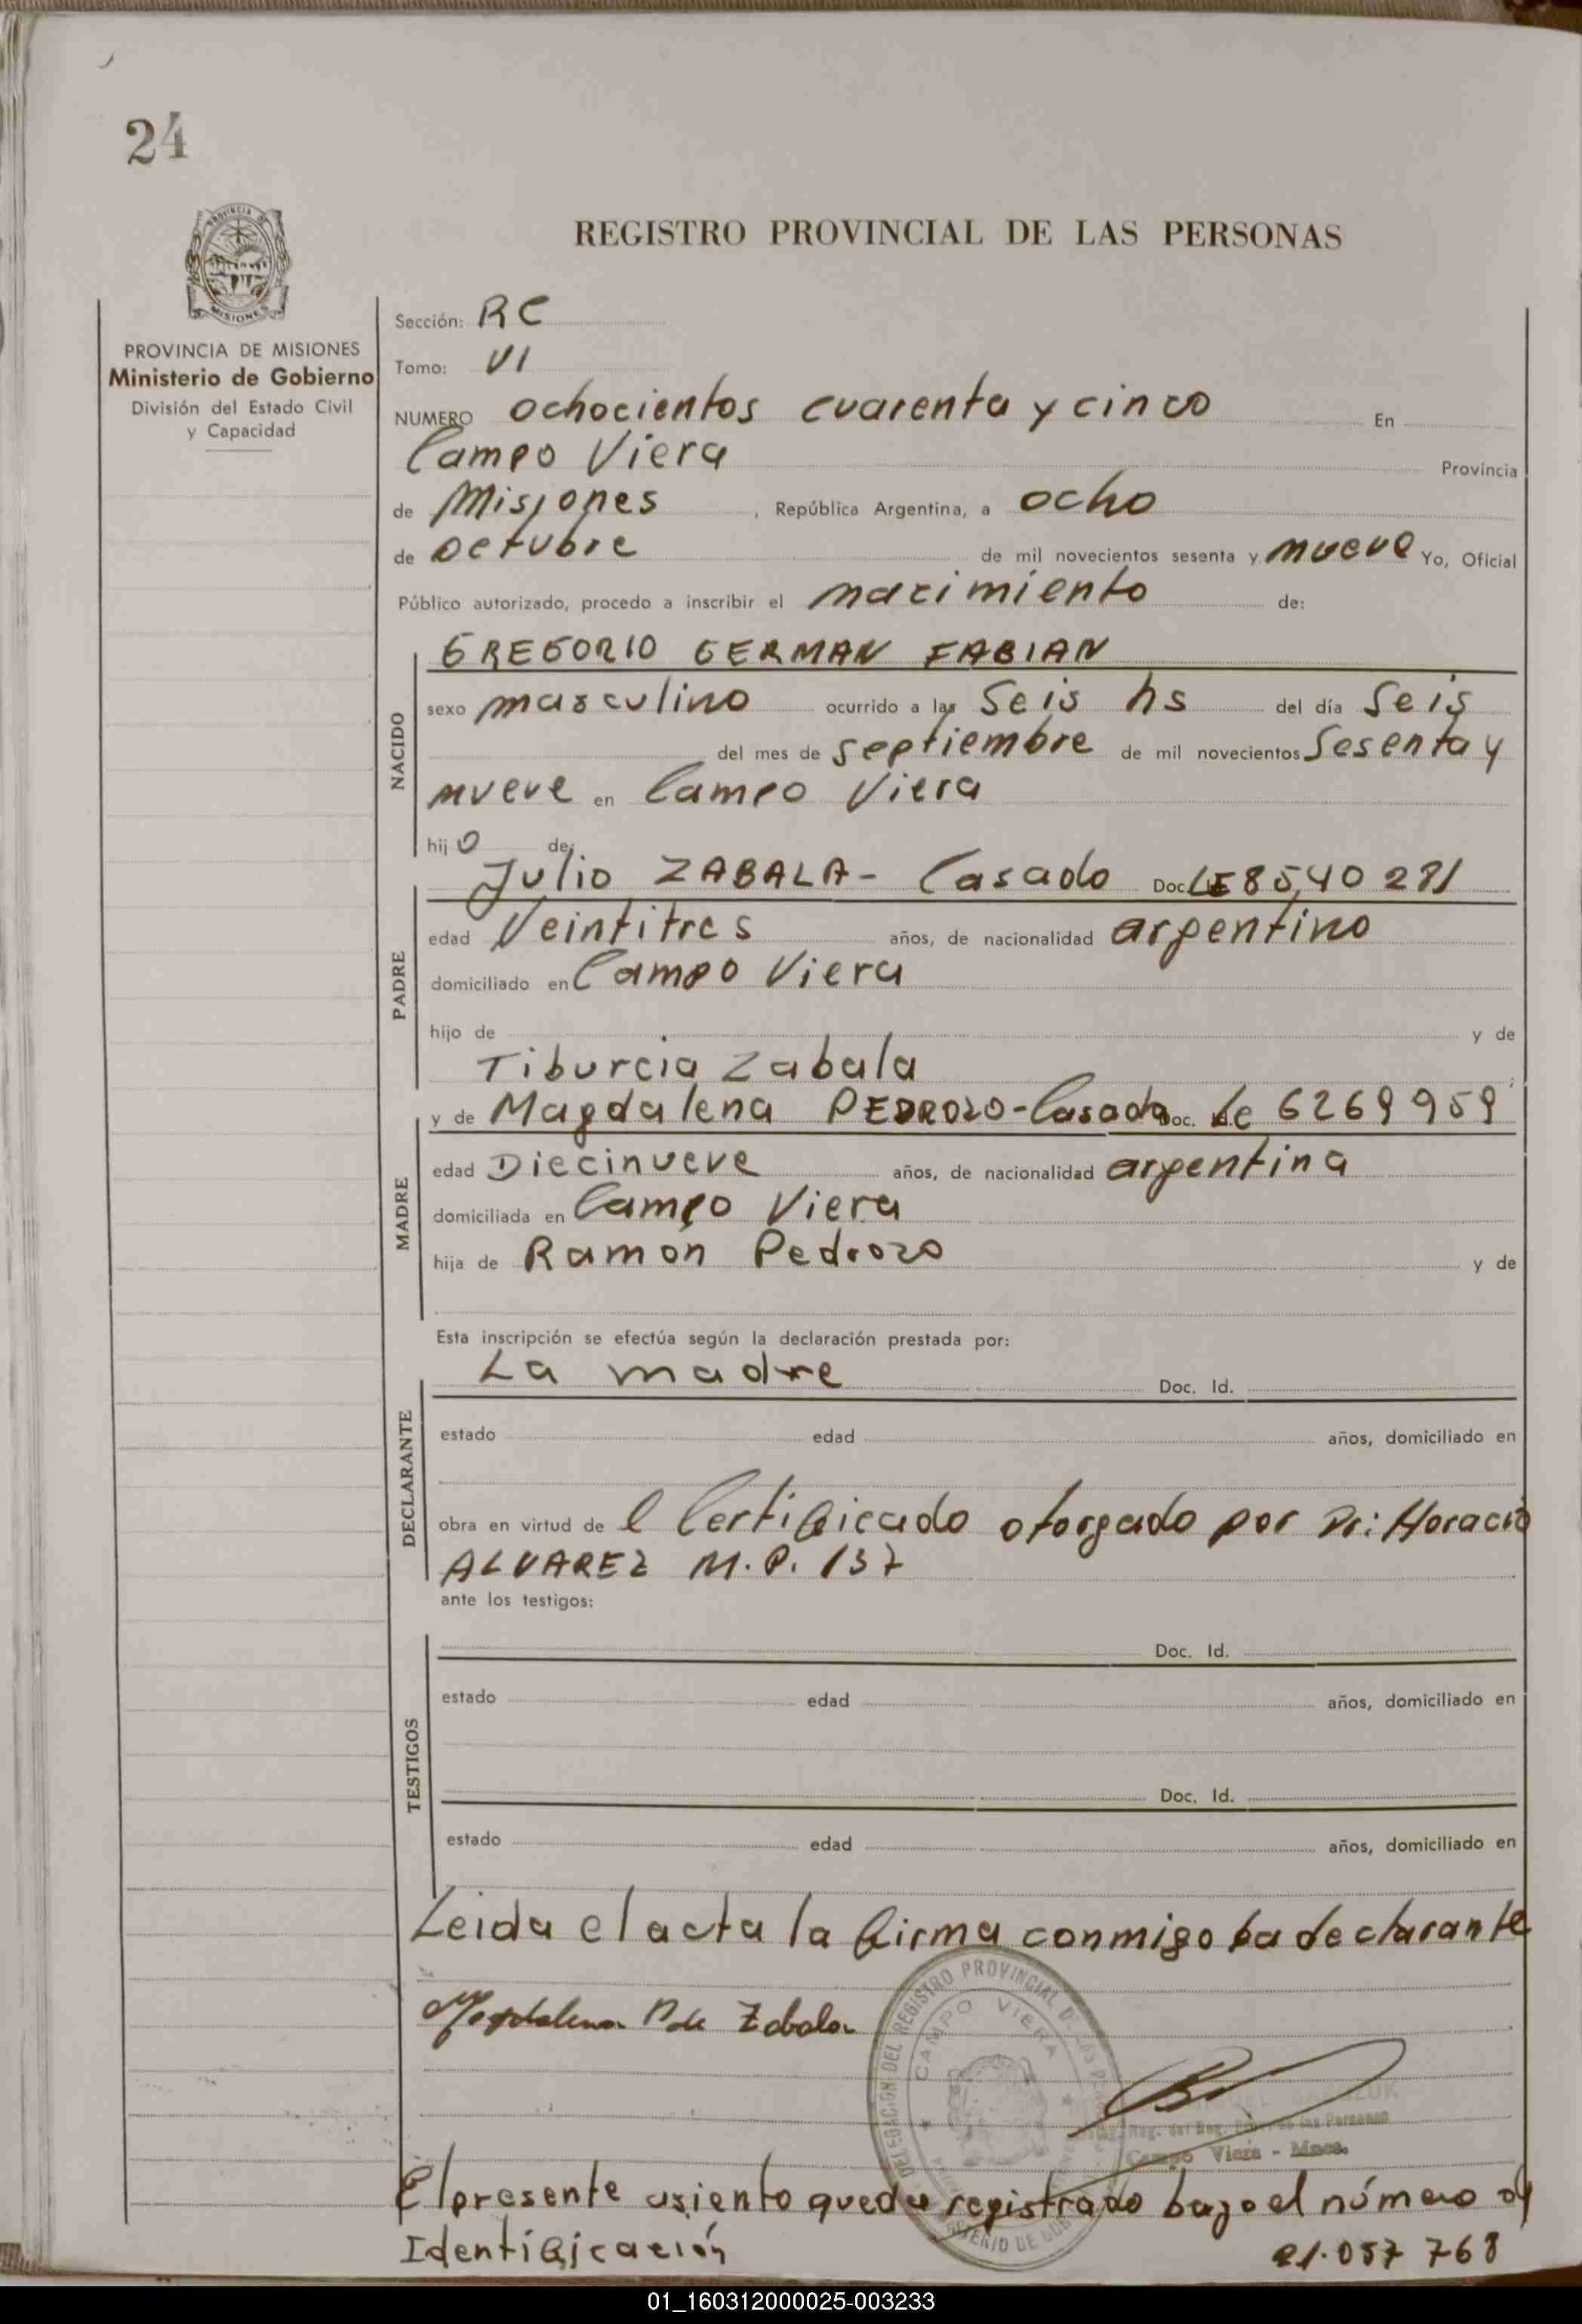 24
REGISTRO PROVINCIAL DE LAS PERSONAS
PROVINCIA DE MISIONES
Ministerio de Gobierno
División del Estado Civil
y Capacidad
Sección: RC
Tomo: VI
NUMERO ochocientos cuarenta y cinco En
Campo Viera Provincia
de Misiones, República Argentina, a ocho
de octubre de mil novecientos sesenta y nueve Yo, Oficial
Público autorizado, procedo a inscribir el nacimiento de:
GREGORIO GERMAN FABIAN
NACIDO
sexo masculino ocurrido a las Seis hs del día Seis
del mes de Septiembre de mil novecientos Sesenta y
nueve en Campo Viera
hijo de:
Julio ZABALA - Casado Doc. LE 8540281
PADRE
edad Veintitres años, de nacionalidad argentino
domiciliado en Campo Viera
hijo de y de
Tiburcia Zabala
y de Magdalena PEDROZO - Casada Doc. Lc 6269959
MADRE
edad Diecinueve años, de nacionalidad argentina
domiciliada en Campo Viera
hija de Ramón Pedrozo y de
Esta inscripción se efectúa según la declaración prestada por:
La madre Doc. Id.
DECLARANTE
estado edad años, domiciliado en
obra en virtud de l Certificado otorgado por Dr: Horacio
ALVAREZ M.P. 137
ante los testigos:
Doc. Id.
TESTIGOS
estado edad años, domiciliado en
Doc. Id.
estado edad años, domiciliado en
Leida el acta la firma conmigo la declarante
Magdalena P de Zabala
DELEGACION DEL REGISTRO PROVINCIAL DE LAS
CAMPO VIERA
Campo Viera - Mnes.
El presente asiento queda registrado bajo el número de
Identificación 21.057 768
01_160312000025-003233